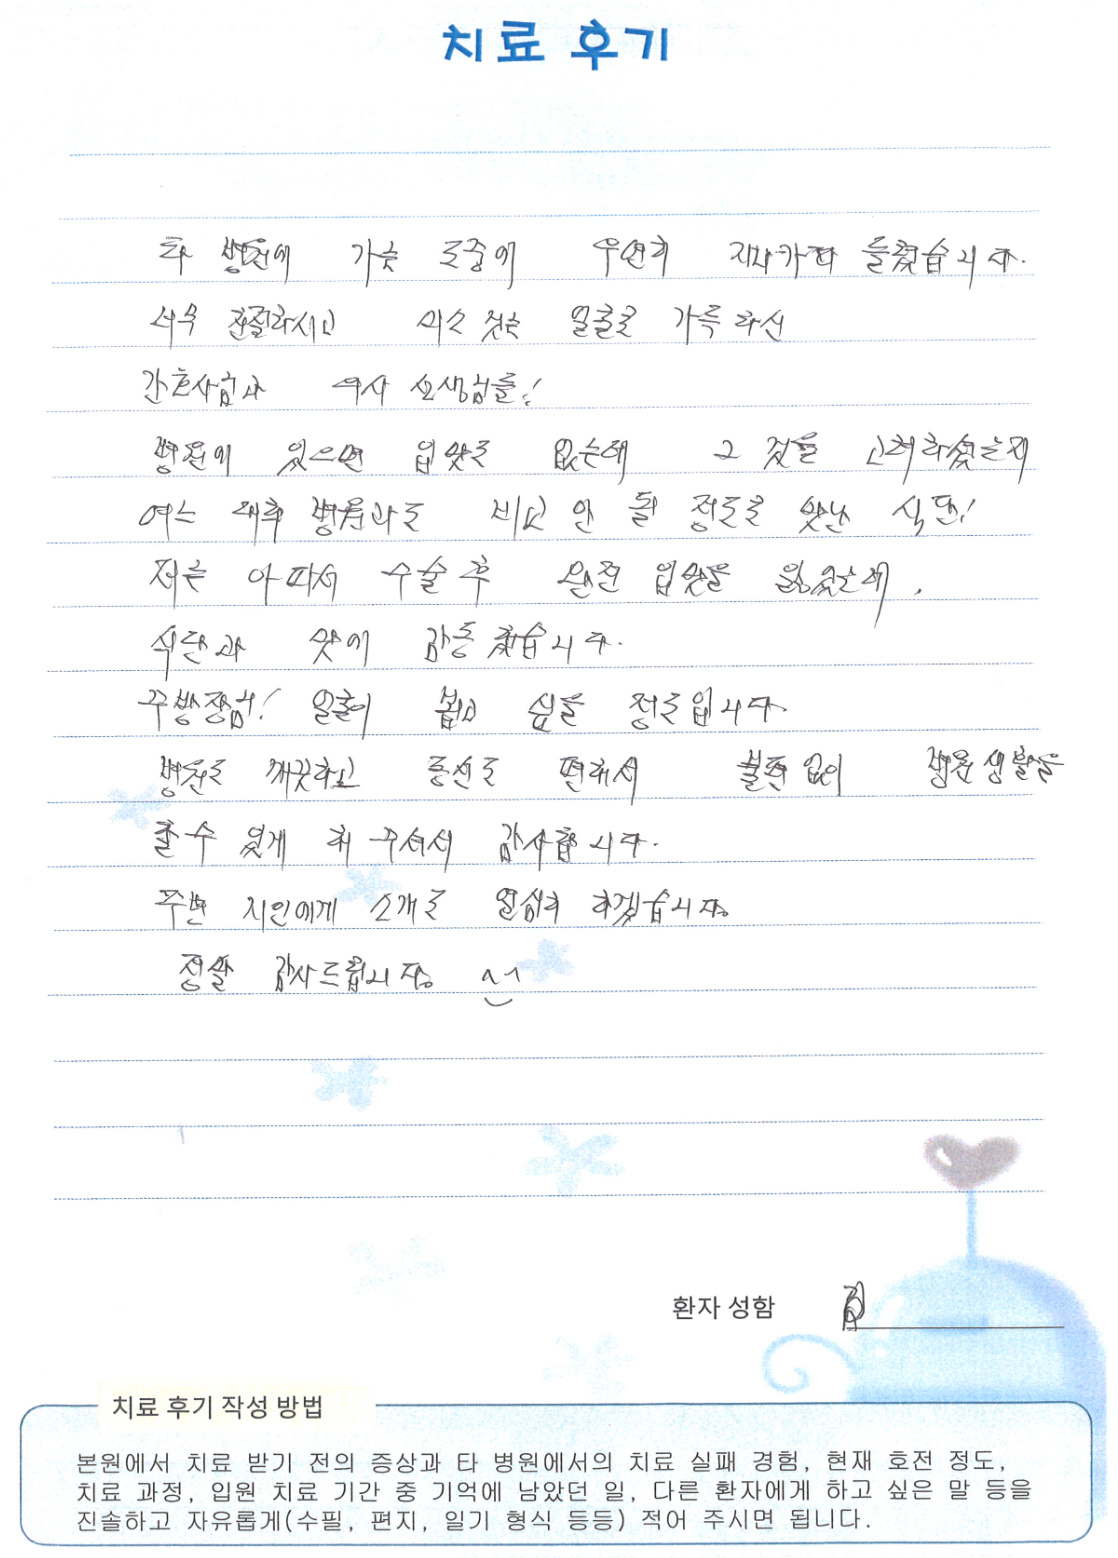 치료 후기
타 병원에 가는 도중에 우연히 지나가다 들렸습니다.
너무 친절하시고 미소 짓는 얼굴로 가득하신
간호사님과 의사 선생님들!
병원에 있으면 입맛도 없는데 그 것을 고려하셨는지
여느 대학병원과도 비교 안 될 정도로 맛난 식단!
저는 아파서 수술 후 완전 입맛을 잃었는데,
식단과 맛에 감동 했습니다.
주방장님! 얼굴이 뵙고 싶을 정도입니다.
병원도 깨끗하고 동선도 편해서 불편 없이 병원 생활을
할 수 있게 해 주셔서 감사합니다.
주변 지인에게 소개도 열심히 하겠습니당
정말 감사드립니당
환자 성함
치료 후기 작성 방법
본원에서 치료 받기 전의 증상과 타 병원에서의 치료 실패 경험, 현재 호전 정도,
치료 과정, 입원 치료 기간 중 기억에 남았던 일, 다른 환자에게 하고 싶은 말 등을
진솔하고 자유롭게(수필, 편지, 일기 형식 등등) 적어 주시면 됩니다.